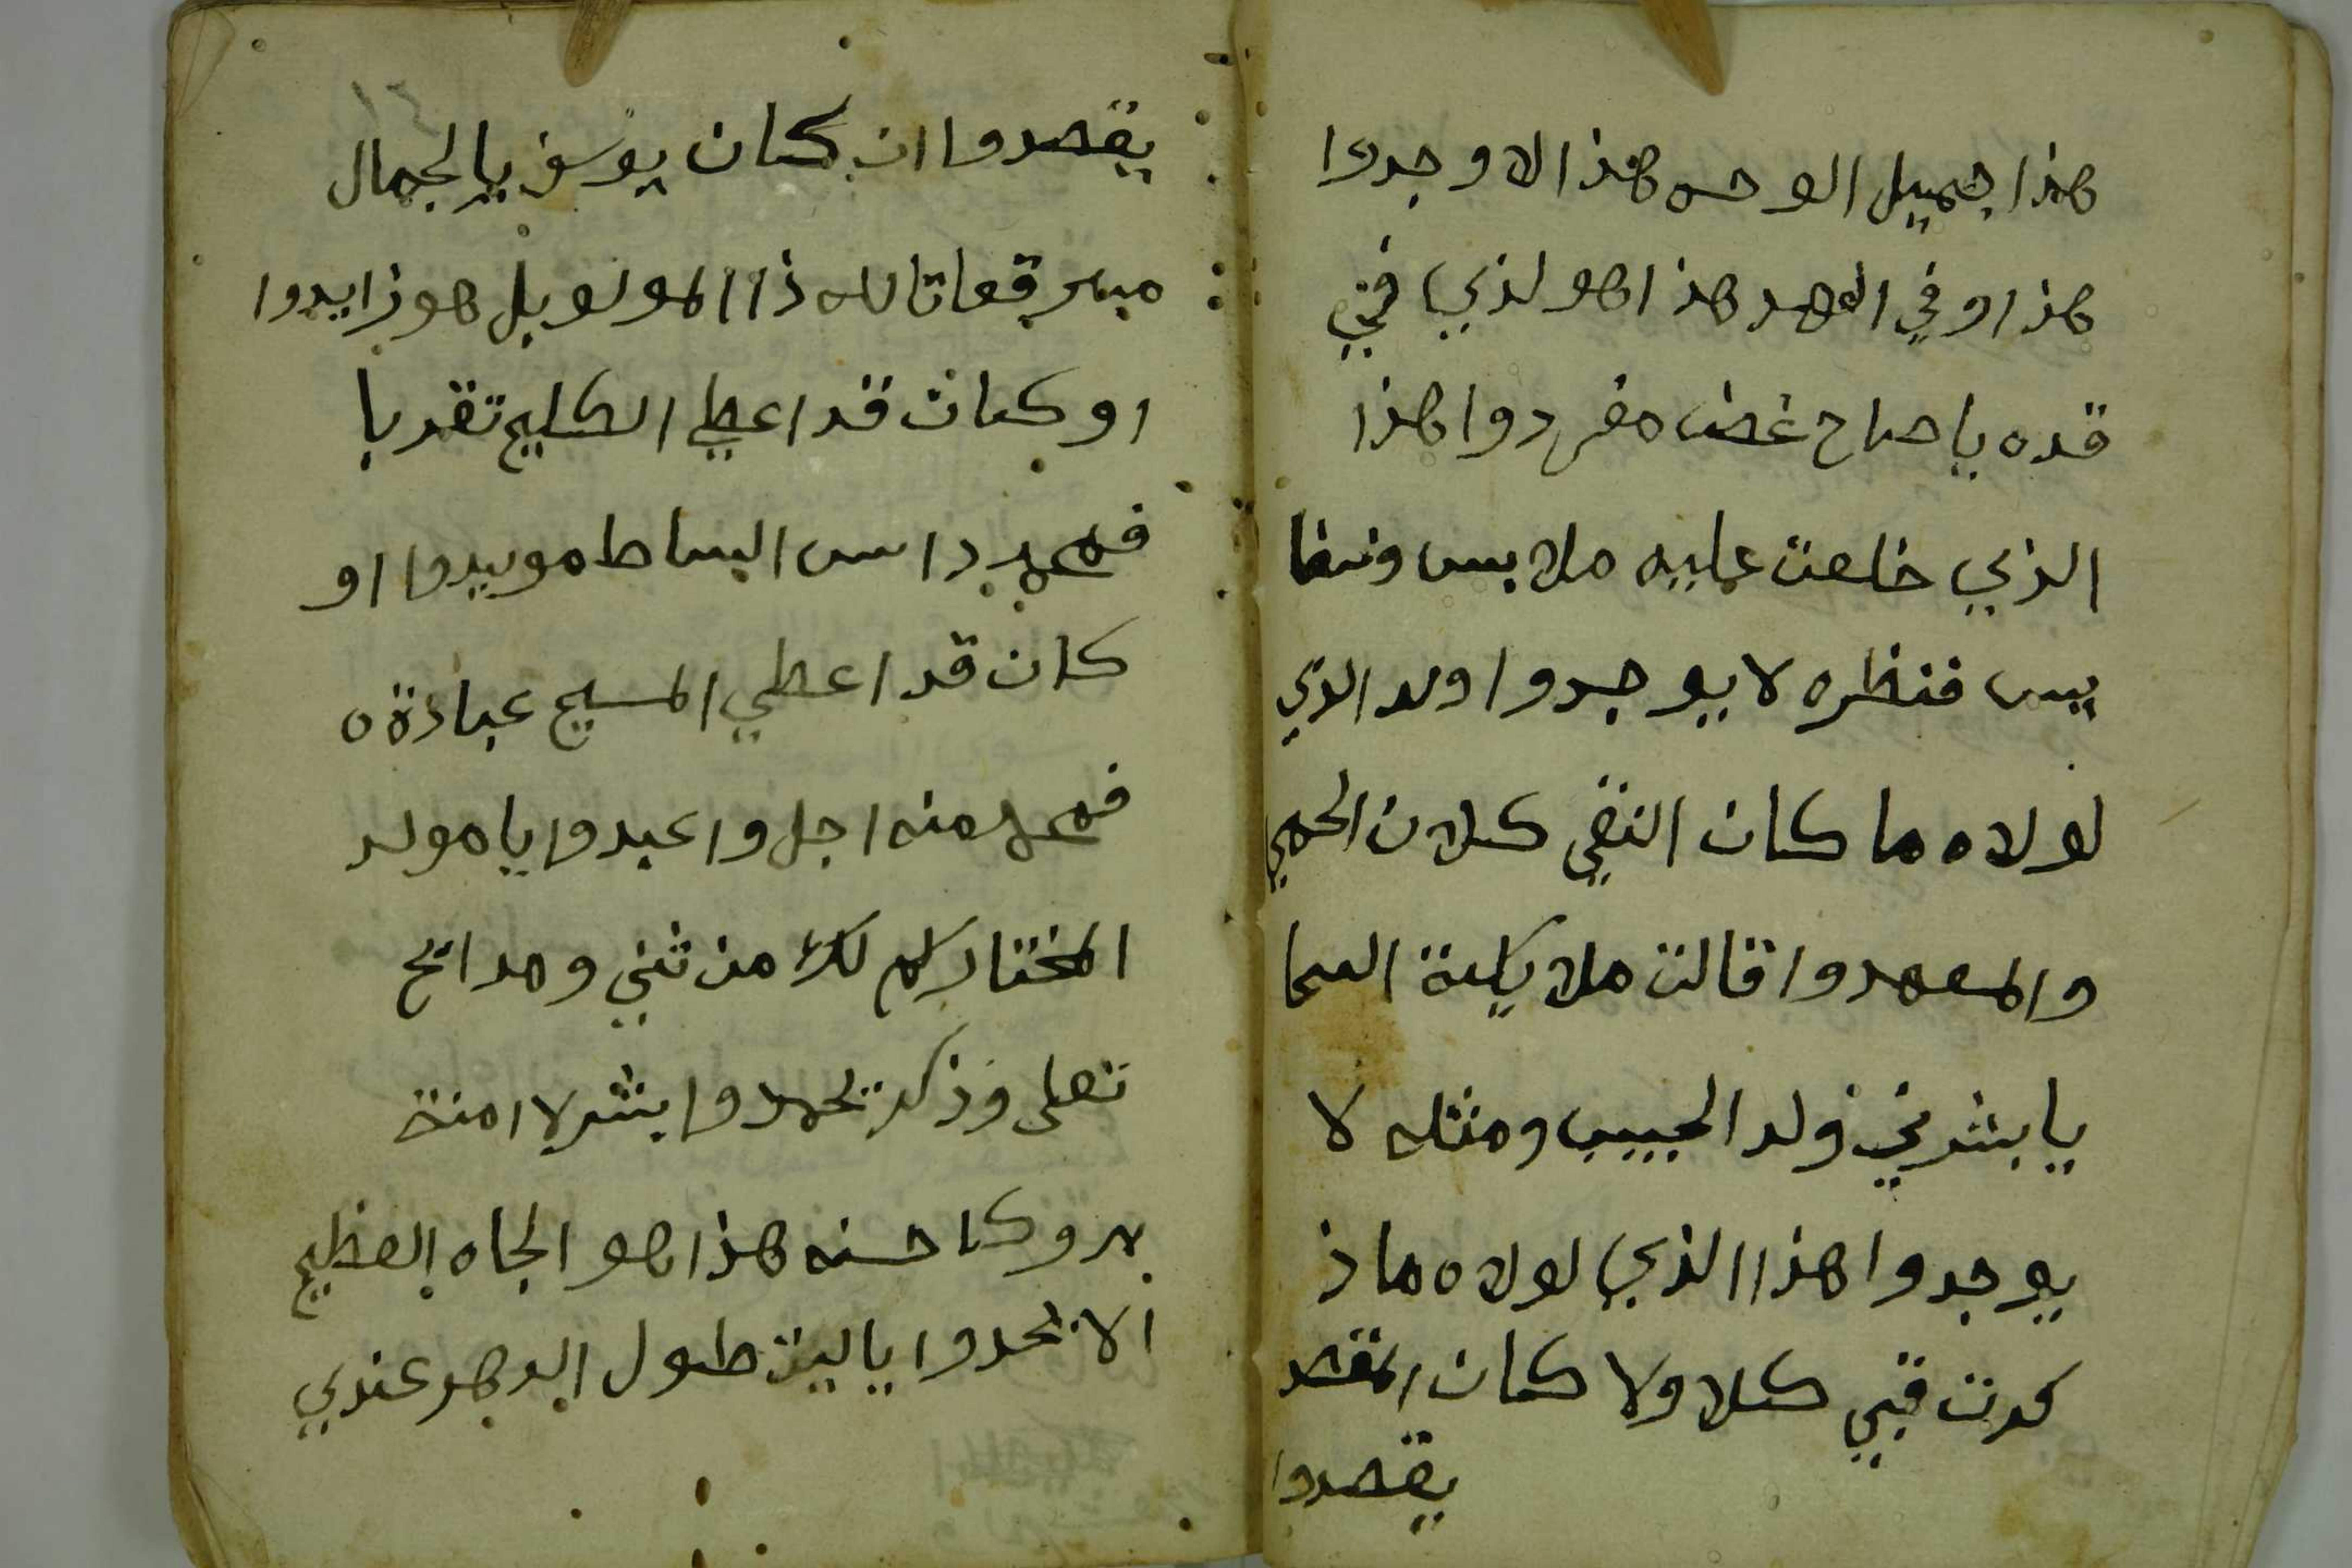 هذا جميل الوجه هذا الاوجدوا
هذا وفي العهد هذا هو لذي فتي
قده ياصاح غضا مفردوا هذا
الذي خلعت عليه ملابس ونفا
يس فنظره لا يوجدوا ولد الذي
لولاه ما كان النقي كلا ن الحمي
والمعهدوا قالت ملايكة السما
يا بشرني ولد الحبيب ومثله لا
يوجدوا هذا الذي لولاه ما ذ
كرت قبي كلا ولا كان المقصد
يقصدوا
١٤
يقصدوا ان كان يوسف بالجمال
مبرقعا تالله ذا المولو بل هو زايدوا
او كان قد اعطي الكليم تقربا
فمحمد داس البساط مويدوا او
كان قد اعطي المسيح عبادة ه
فمحمد منه اجل واعبدوا يا مولد
المختار كم لك من ثني ومدائح
تعلى وذكر تحمدوا بشر لا امنة
بروكا حسنه هذا هو الجاه العظيم
الا نحدوا ياليت طول الدهر عندي